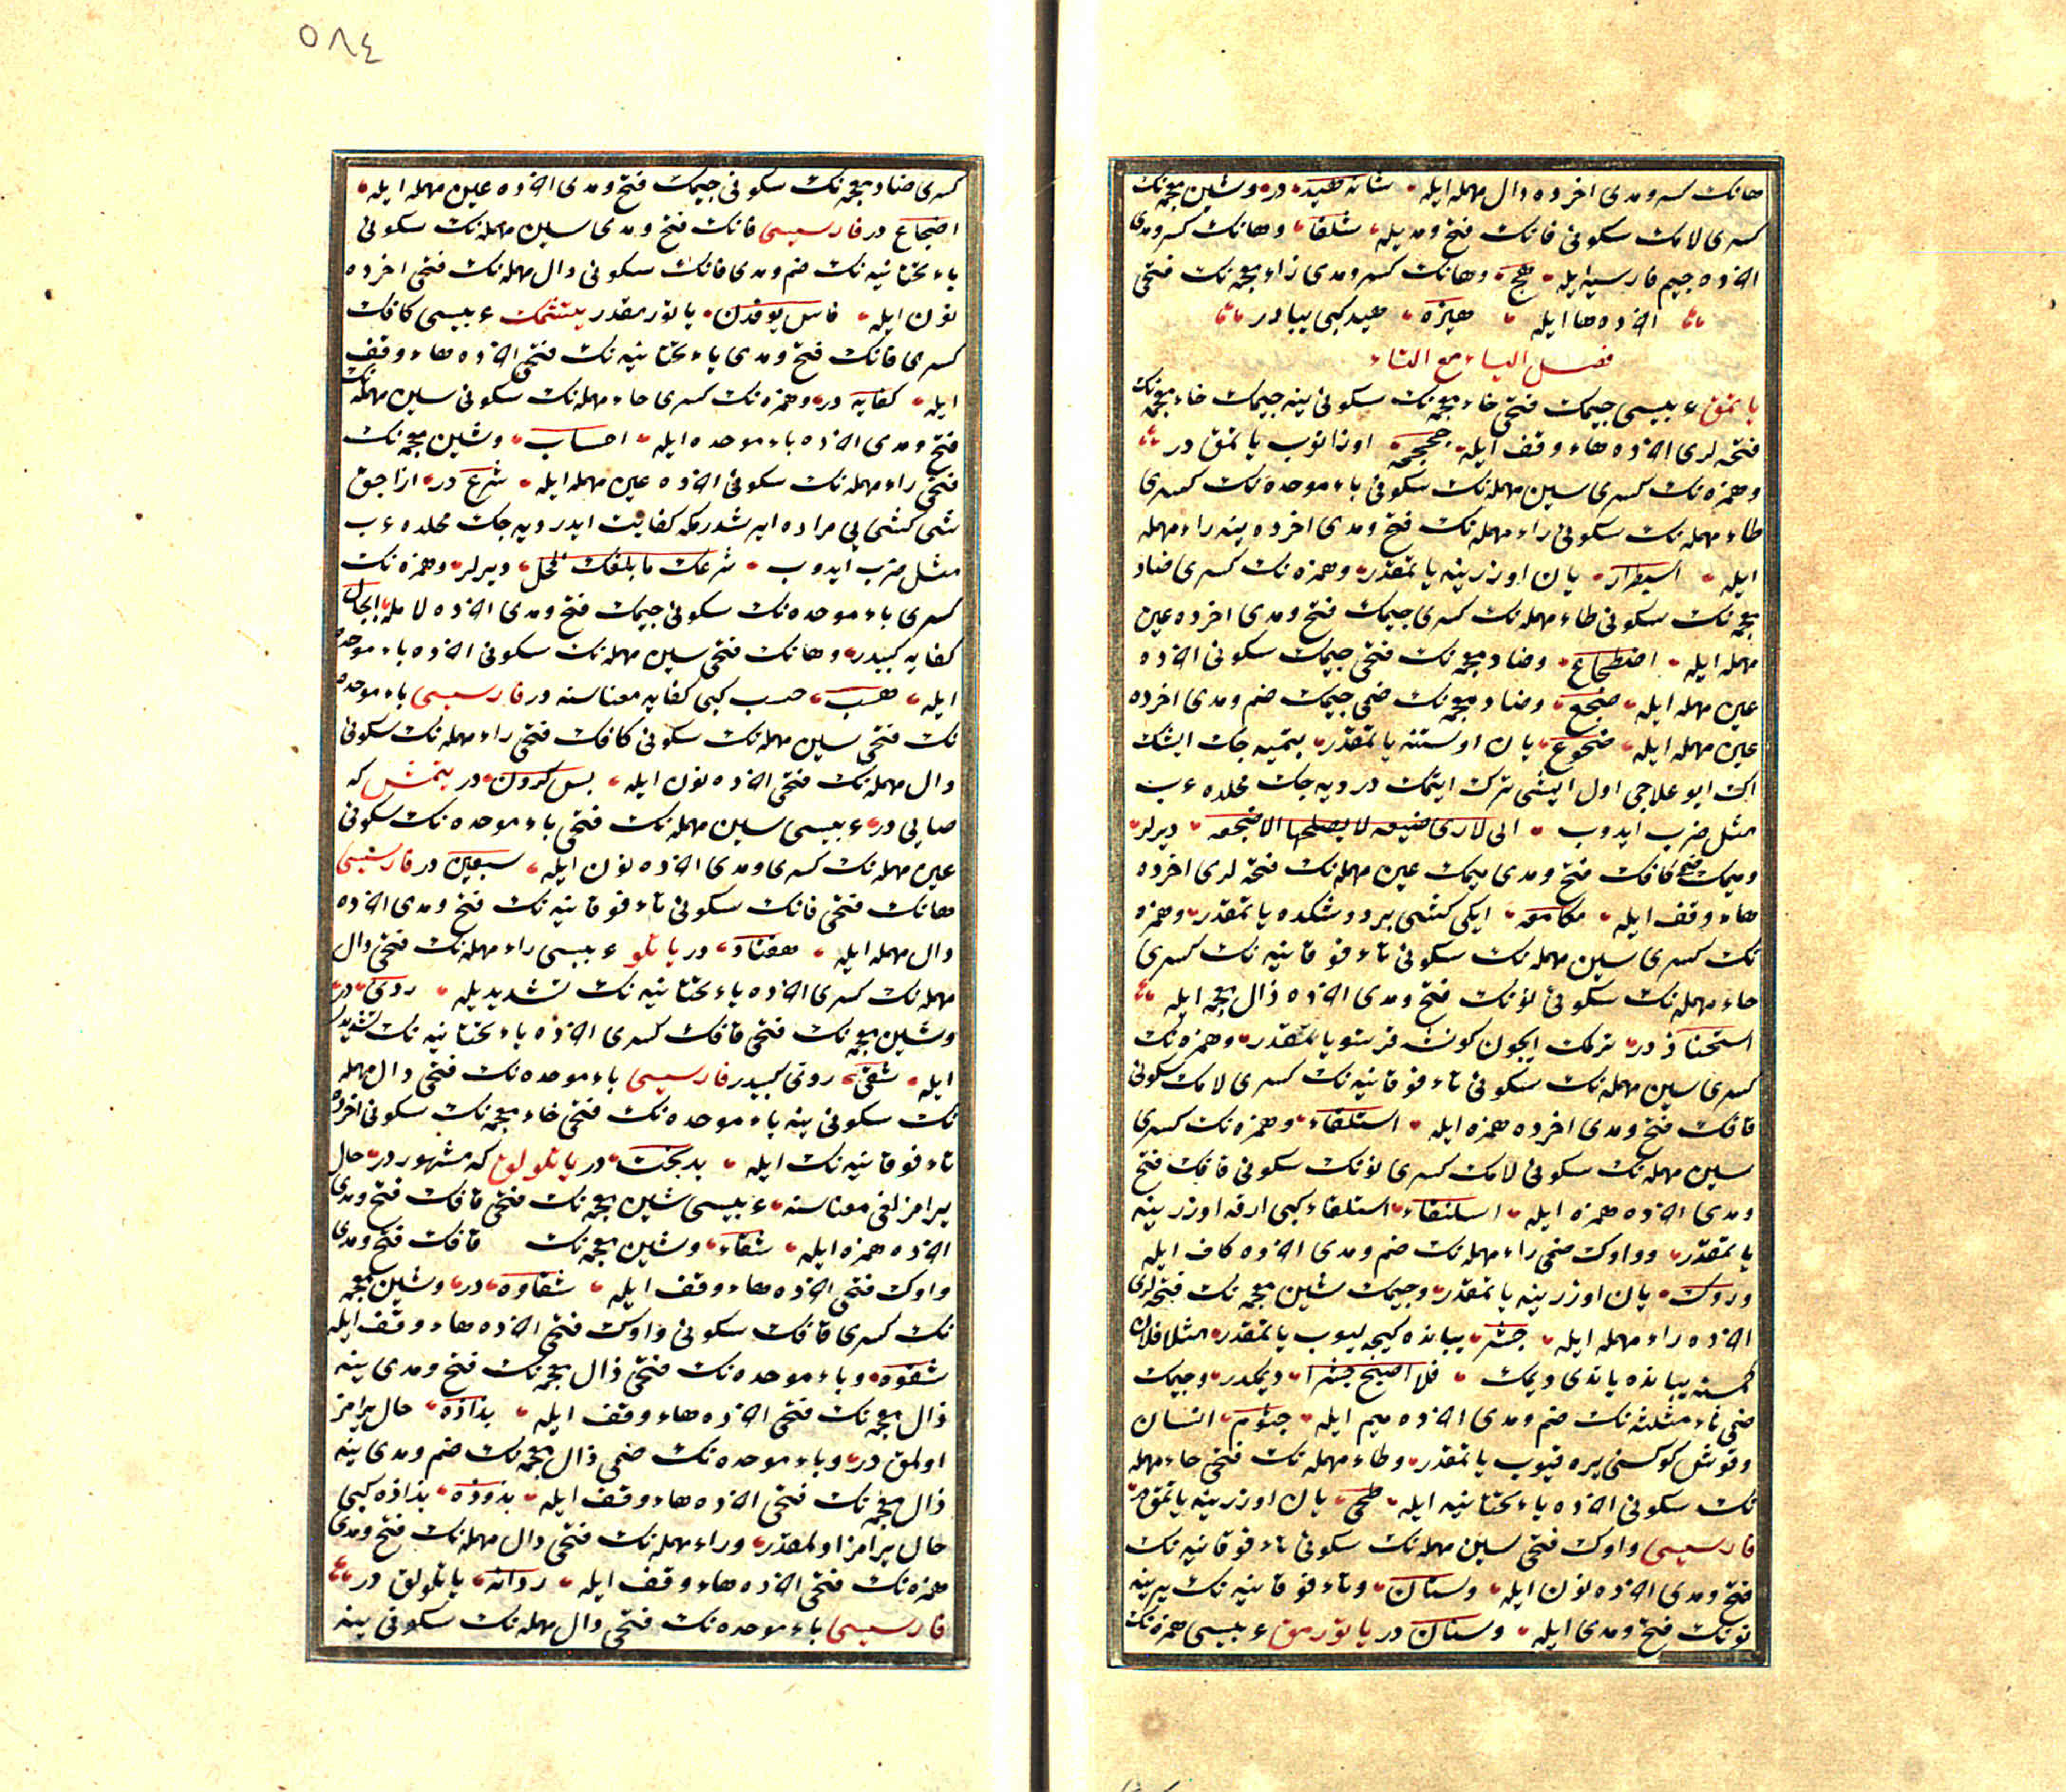 هانك كسر ومدى اخرده دال مهمله ايله شانه هيد در وشين معجمه نك
كسرى لامك سكونى فانك فتح ومديله شلفا وهانك كسر ومدى
اخرده جيم فارسيه ايله هيج وهانك كسر ومدى زاء معجمه نك فتحى
اخرده ها ايله هيزه هيد كبى يبادر
فصل الياء مع التاء
ياتمق عربيسى جيمك فتحى خاء معجمه نك سكونى ينه جيمك خاء معجمه نك
فتحه لرى اخرده هاء وقف ايله جخجخه اوزانوب ياتمق در
وهمزه نك كسرى سين مهمله نك سكونى باء موحده نك كسرى
طاء مهمله نك سكونى راء مهمله نك فتح ومدى اخرده ينه راء مهمله
ايله اسبطرار يان اوزرينه ياتمقدر وهمزه نك كسرى ضاد
معجمه نك سكونى طاء مهمله نك كسرى جيمك فتح ومدى اخرده عين
مهمله ايله اضطجاع وضاد معجمه نك فتحى جيمك سكونى اخرده
عين مهمله ايله ضجع وضاد معجمه نك ضمى جيمك ضم ومدى اخرده
عين مهمله ايله ضجوع يان اوستنه ياتمقدر بتميه جك ايشك
اك ايو علاجى اول ايشى ترك ايتمك در ديه جك محلده عرب
مثل ضرب ايدوب انى لارى ضيعه لا يصلحها الا ضجعه ديرلر
وميمك ضمى كافك فتح ومدى ميمك عين مهمله نك فتحه لرى اخرده
هاء وقف ايله مكامعه ايكى كشى بر دوشكده ياتمقدر وهمزه
نك كسرى سين مهمله نك سكونى تاء فوقانيه نك كسرى
حاء مهمله نك سكونى نونك فتح ومدى اخرده ذال معجمه ايله
استحناذ در ترلمك ايچون كونشه قرشو ياتمقدر وهمزه نك
كسرى سين مهمله نك سكونى تاء فوقانيه نك كسرى لامك سكونى
قافك فتح ومدى اخرده همزه ايله استلقاء وهمزه نك كسرى
سين مهمله نك سكونى لامك كسرى نونك سكونى قافك فتح
ومدى اخرده همزه ايله اسلنقاء استلقاء كبى ارقه اوزرينه
ياتمقدر وواوك ضمى راء مهمله نك ضم ومدى اخرده كاف ايله
وروك يان اوزرينه ياتمقدر وجيمك شين معجمه نك فتحه لرى
اخرده راء مهمله ايله جشر يبانده كيجه ليوب ياتمقدر مثلا فلان
كمسنه يبانده ياتدى ديمك فلا اصبح جشرا ديمكدر وجيمك
ضمى ثاء مثلثه نك ضم ومدى اخرده ميم ايله جثوم انسان
وقوش كوكسنى يره قيوب ياتمقدر وطاء مهمله نك فتحى حاء مهمله
نك سكونى اخرده ياء تحتانيه ايله طحى يان اوزرينه ياتمق در
فارسيسى واوك فتحى سين مهمله نك سكونى تاء فوقانيه نك
فتح ومدى اخرده نون ايله وستان وتاء فوقانيه نك يرينه
نونك فتح ومدى ايله وسنان در ياتورمق عربيسى همزه نك
٥٨٤
كسرى ضاد معجمه نك سكونى جيمك فتح ومدى اخرده عين مهمله ايله
اضجاع در فارسيسى فانك فتح ومدى سين مهمله نك سكونى
ياء تحتانيه نك ضم ومدى فانك سكونى دال مهمله نك فتحى اخرده
نون ايله ياتورمقدر يتشمك عربيسى كافك
كسرى فانك فتح ومدى ياء تحتانيه نك فتحى اخرده هاء وقف
ايله كفايه در وهمزه نك كسرى حاء مهمله نك سكونى سين مهمله نك
فتح ومدى اخرده باء موحده ايله احساب وشين معجمه نك
فتحى راء مهمله نك سكونى اخرده عين مهمله ايله شرع در ازاجق
شى كشى يى مراده ايرشدرمكه كفايت ايدر ديه جك محلده عرب
مثل ضرب ايدوب شرعك ما بلغك المحل ديرلر وهمزه نك
كسرى باء موحده نك سكونى جيمك فتح ومدى اخرده لامله ابجال
كفايه كبيدر وهانك فتحى سين مهمله نك سكونى اخرده باء موحده
ايله هسب حسب كبى كفايه معناسنه در فارسيسى باء موحده
نك فتحى سين مهمله نك سكونى كافك فتحى راء مهمله نك سكونى
دال مهمله نك فتحى اخرده نون ايله بس كردن در يتمش كه
صايى در عربيسى سين مهمله نك فتحى باء موحده نك سكونى
عين مهمله نك كسرى ومدى اخرده نون ايله سبعين در فارسيسى
هانك فتحى فانك سكونى تاء فوقانيه نك فتح ومدى اخرده
دال مهمله ايله هفتاد در ياتلو عربيسى راء مهمله نك فتحى دال
مهمله نك كسرى اخرده ياء تحتانيه نك تشديديله ردى در
وشين معجمه نك فتحى قافك كسرى اخرده ياء تحتانيه نك تشديدى
ايله شقى ردى كبيدر فارسيسى باء موحده نك فتحى دال مهمله
نك سكونى ينه باء موحده نك فتحى خاء معجمه نك سكونى اخرده
تاء فوقانيه نك ايله بدبخت در ياتلولوغ كه مشهور در حال
يرامزلغى معناسنه عربيسى شين معجمه نك فتحى قافك فتح ومدى
اخرده همزه ايله شقاء وشين معجمه نك قافك فتح ومدى
واوك فتحى اخرده هاء وقف ايله شقاوه در وشين معجمه
نك كسرى قافك سكونى واوك فتحى اخرده هاء وقف ايله
شقوه وباء موحده نك فتحى ذال معجمه نك فتح ومدى ينه
ذال معجمه نك فتحى اخرده هاء وقف ايله بذاذه حال يرامز
اولمق در وباء موحده نك ضمى ذال معجمه نك ضم ومدى ينه
ذال معجمه نك فتحى اخرده هاء وقف ايله بذوذه بذاذه كبى
حال يرامز اولمقدر وراء مهمله نك فتحى دال مهمله نك فتح ومدى
همزه نك فتحى اخرده هاء وقف ايله رداءه ياتلولق در
فارسيسى باء موحده نك فتحى دال مهمله نك سكونى ينه